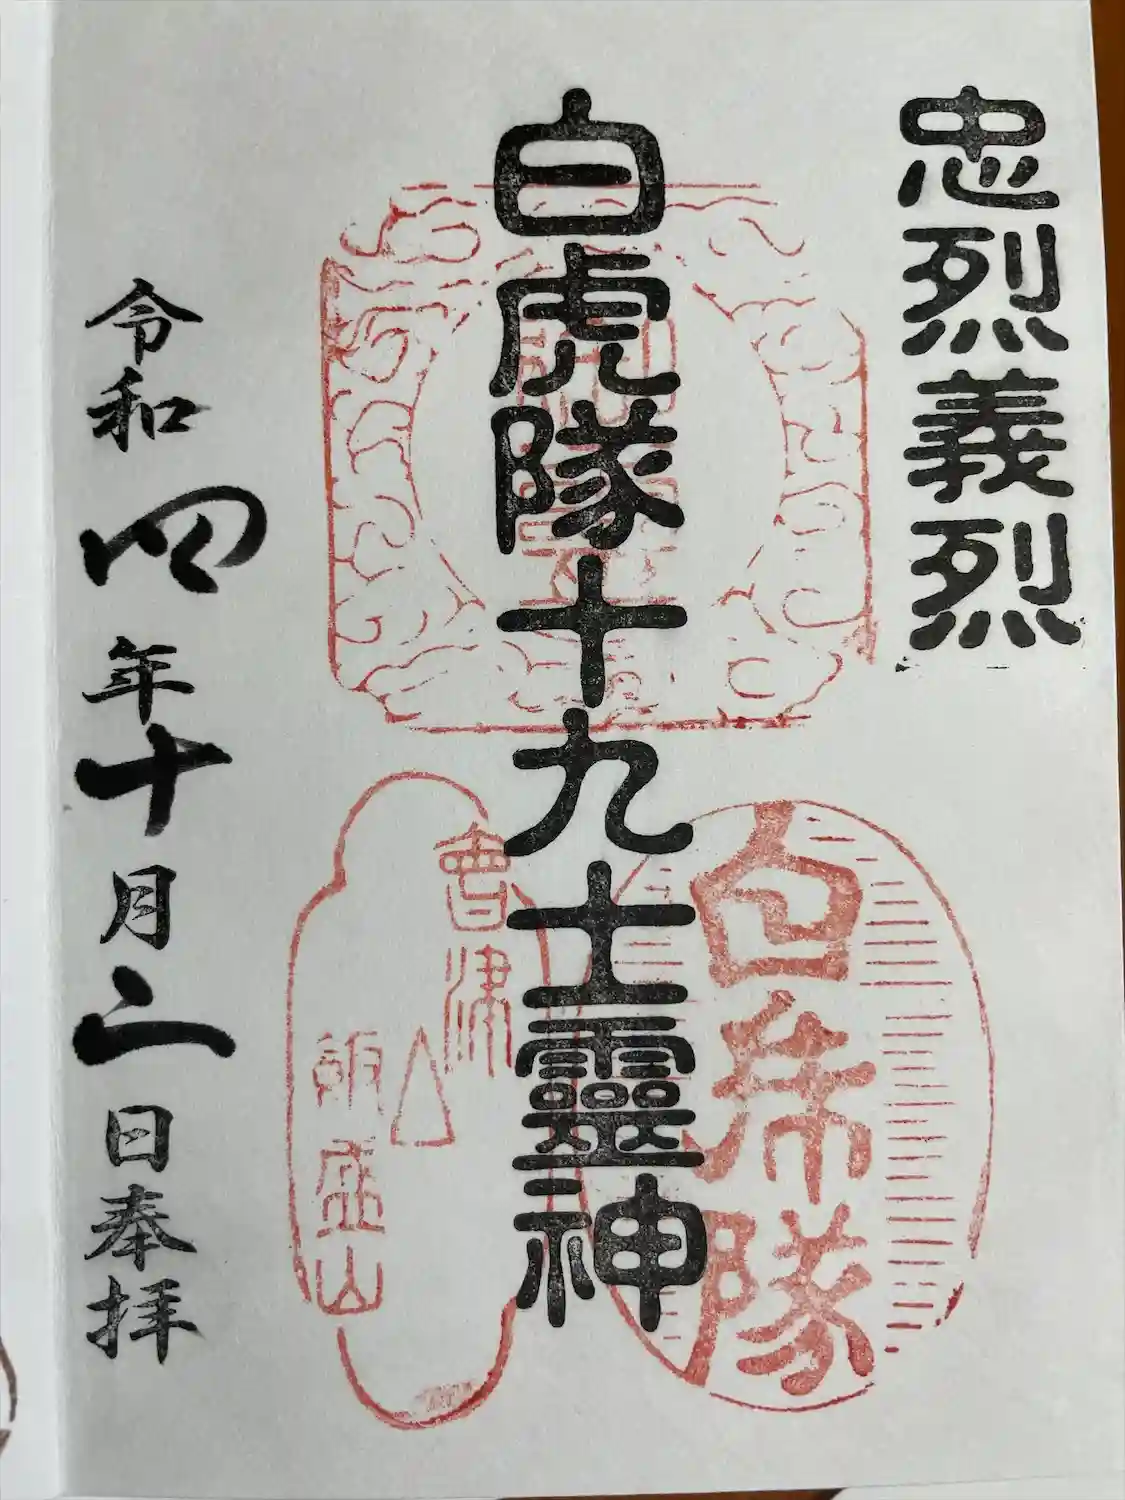 忠烈義烈
白虎隊十九士霊神
白虎隊
會津
飯盛山
令和四年十月二日奉拝